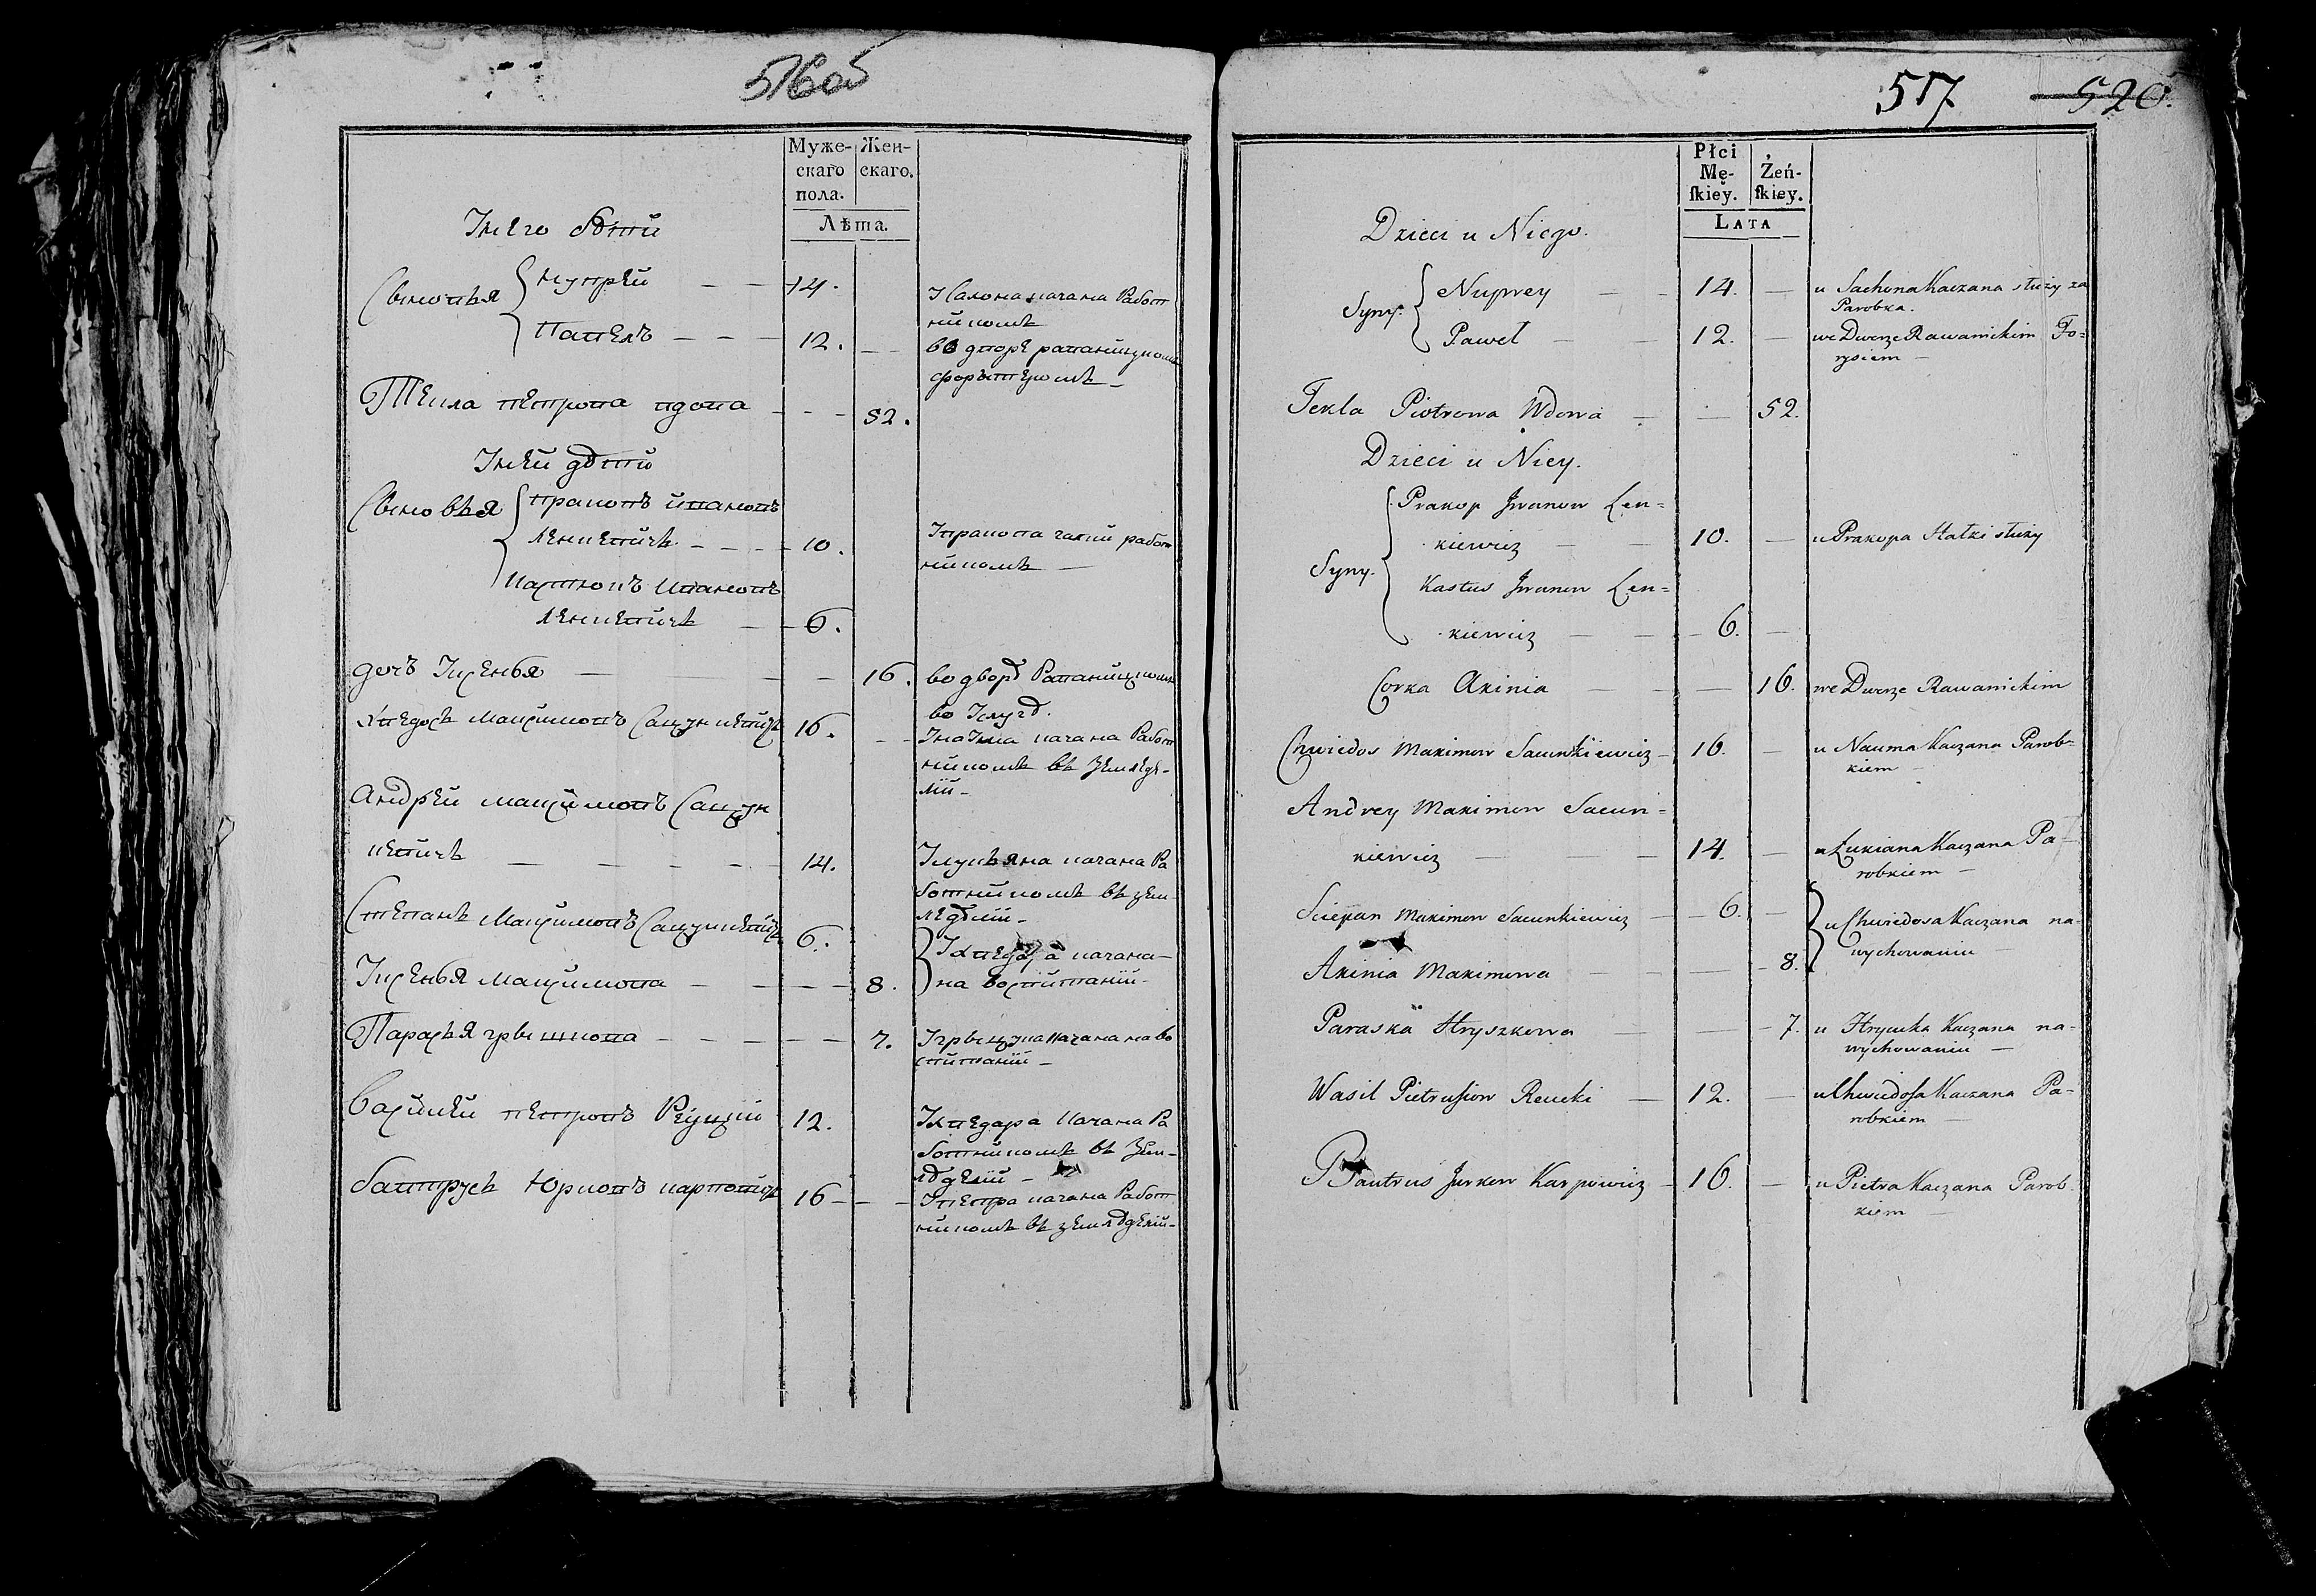 516об
Муже-
скаго
пола.
Жен-
скаго.
Лѣта.
Унего дѣти
Сыновья
Нупрей 14.
Павелъ 12.
УСахона качана Работ
никомъ
во дворѣ раваницкомъ
форытеромъ
Текла петрова вдова 52.
Уней дѣти
Сыновья
пракопъ ивановъ
ленкевичъ 10.
Упракопа галки работ
никомъ
Кастюкъ ивановъ
ленкевичъ 6.
дочъ Аксенья 16.
во дворѣ Раваницкомъ
во Услугѣ.
хведосъ Максимовъ Сацункевичъ 16.
УнаУма качана Работ
никомъ въ Земледе-
лiи
Андрей максимовъ Сацун
кевичъ 14.
Улукьяна качана Ра
ботникомъ въ зем-
ледѣлiи
Степанъ Максимовъ Сацункевичъ 6.
Аксенья Максимова 8.
Ухведоса качана
на воспитанiи
Парасья грышкова 7.
Угрыцука качана на во
спитанiи
Василей петровъ Реуцкiй 12.
Ухведара Качана Ра
ботникомъ въ Зем-
лѣделiи
батрусь Юрковъ карповичъ 16
Упетра качана Работ
никомъ въ землѣделiи
517
520.
Płci
Mę-
ſkiey.
Żeń-
ſkiey.
LATA
Dzieci u Niego.
Syny.
Nuprey 14.
u Sachona Kaczana służy za
Parobka.
Paweł 12.
we Dworze Rawanickim Fo=
rysiem
Tekla Piotrowa Wdowa 52.
Dzieci u Niey.
Syny.
Prakop Jwanow Len=
kiewicz 10.
u Prakopa Hałki służy
Kastus Jwanow Len=
kiewicz 6.
Corka Axinia 16.
we Dworze Rawanickim
Chwiedos Maximow Sacunkiewicz 16.
u Nauma Kaczana Parob=
kiem
Andrey Maximow Sacun=
kiewicz 14.
u Łukiana Kaczana Pa-
robkiem
Sciepan Maximow Sacunkiewicz 6.
u Chwiedosa Kaczana na-
wychowaniu
Axinia Maximowa 8.
Paraska Hryszkowa 7.
u Hrycuka Kaczana na-
wychowaniu
Wasil Pietrusiow Reucki 12.
u Chwiedoſa Kaczana Pa=
robkiem
Bautrus Jurkow Karpowicz 16.
u Pietra Kaczana Parob
kiem